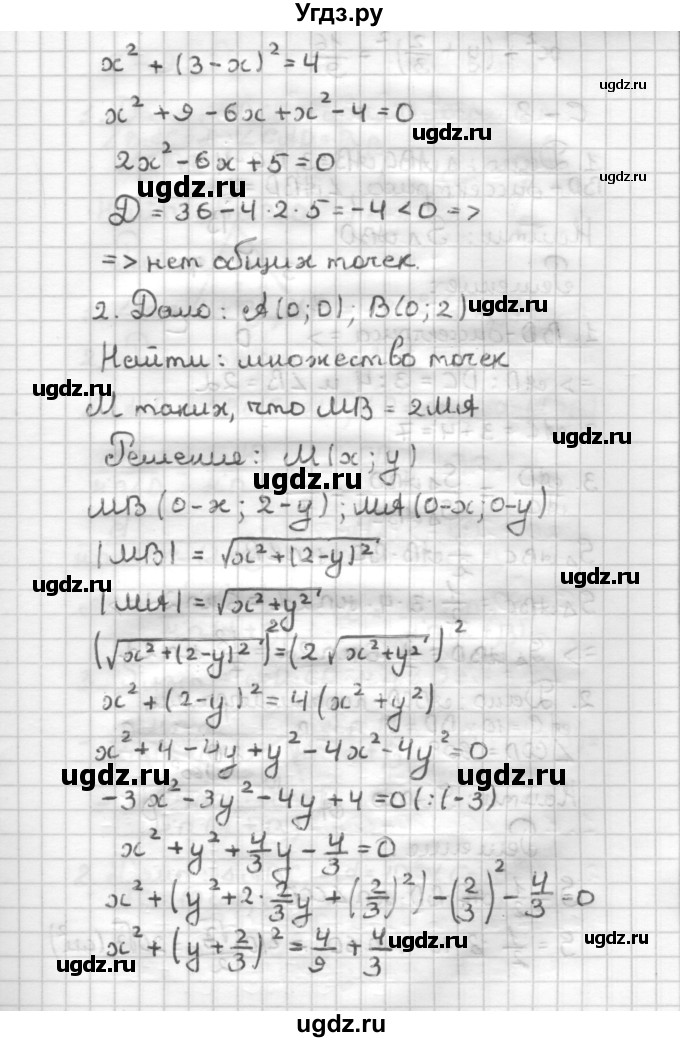 Угдз.ру
x² + (3 - x)² = 4
ugdz.ru
x² + 9 - 6x + x² - 4 = 0
ugdz.ru
2x² - 6x + 5 = 0
ugdz.ru ugdz.ru
Д = 36 - 4 · 2 · 5 = -4 < 0 =>
=> нет общих точек.
ugdz.ru
2. Дано: A(0; 0); B(0; 2)
ugdz.ru
Найти: множество точек
ugdz.ru
M таких, что MB = 2MA
ugdz.ru
Решение: M(x; y)
ugdz.ru
MB (0-x; 2-y); MA (0-x; 0-y)
|MB| = √(x² + (2-y)²)
ugdz.ru ugdz.ru
|MA| = √(x² + y²)
(√(x² + (2-y)²))² = (2√(x² + y²))²
ugdz.ru
x² + (2-y)² = 4(x² + y²)
x² + 4 - 4y + y² - 4x² - 4y² = 0
ugdz.ru ugdz.ru
-3x² - 3y² - 4y + 4 = 0 (:(-3)
x² + y² + 4/3 y - 4/3 = 0
ugdz.ru
x² + (y² + 2 · 2/3 y + (2/3)²) - (2/3)² - 4/3 = 0
ugdz.ru
x² + (y + 2/3)² = 4/9 + 4/3
ugdz.ru ugdz.ru
ugdz.ru